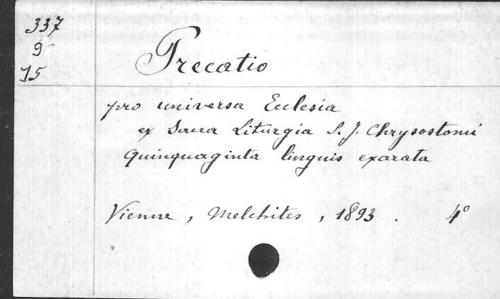 337
9
15
Precatio
pro universa Ecclesia
ex Sacra Liturgia S. J. Chrysostomi
Quinquaginta linguis exarata
Vienne, Melchites, 1893. 4°